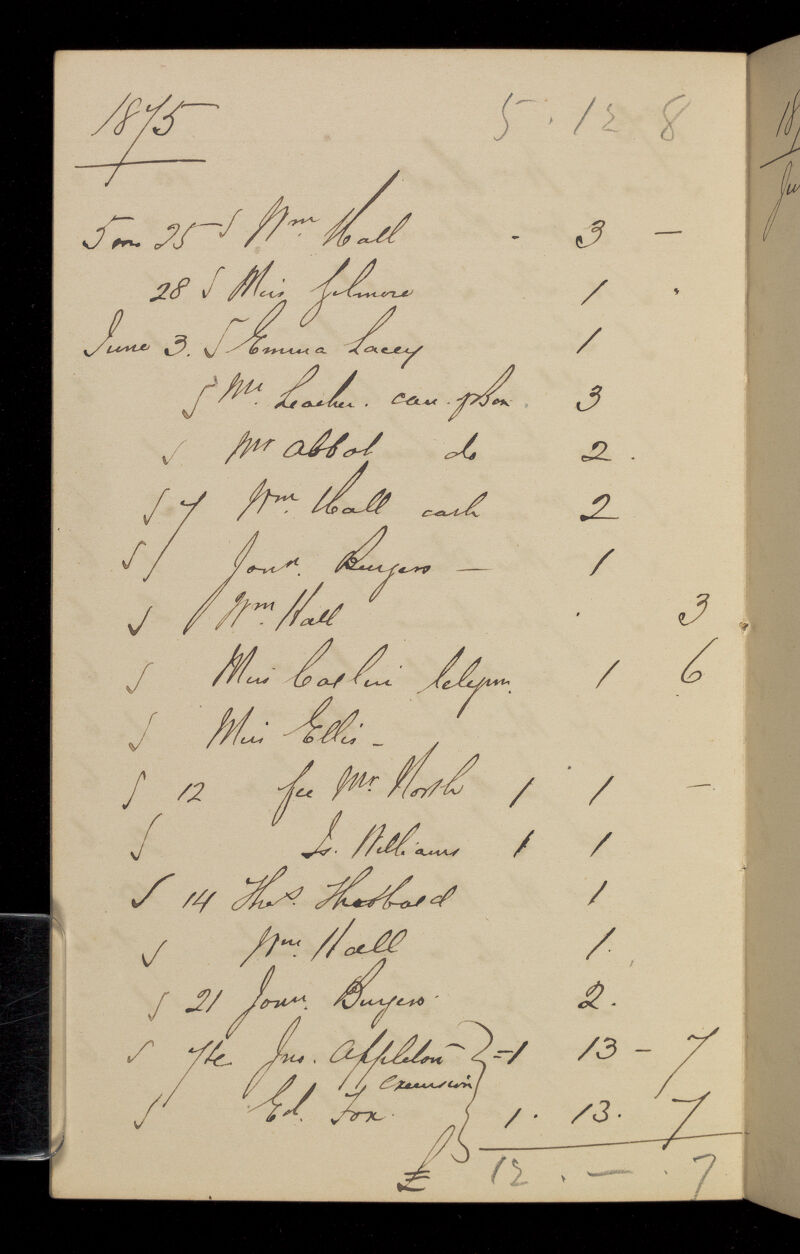 1875 5 . 12 8
25 Wm Hall - 3 —
28 Miss Gilmore 1 "
June 3. Emma Lacey 1
Mr. Leacher. can. 3
Mr Abbot do 2 .
7 Wm. Hall cash 2
Jonn. Burgess — 1
Wm. Hall . 3
Miss 1 6
Miss Ellis -
12 fee Mr. North 1 1 —
Js. Williams 1 1
14 Thos. 1
Wm. Hall 1.
21 Jonn. Burgess. 2.
Jno. Appleton = 1 13 - 7
excursion
Ed. Fox. 1 . 13 . 7
£ 12 . — . 7
18
Ju